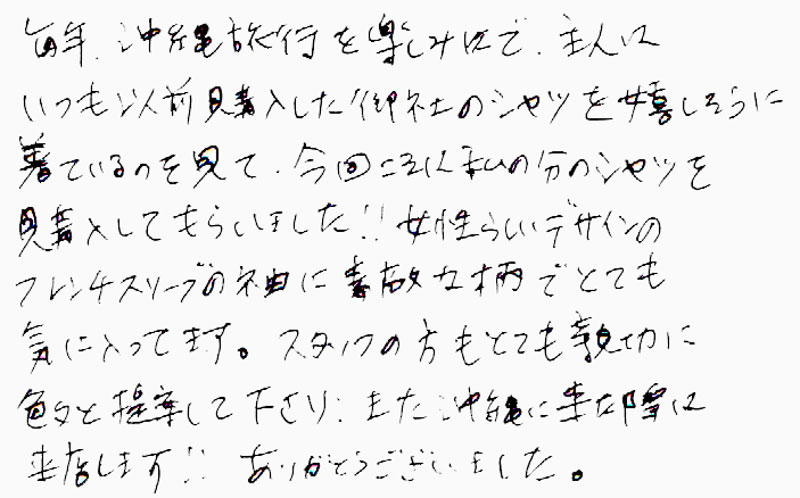 毎年、沖縄旅行を楽しみにで、主人は
いつも以前購入した御社のシャツを嬉しそうに
着ているのを見て、今回こそは私の分のシャツを
購入してもらいました!! 女性らしいデザインの
フレンチスリーブの袖に素敵な柄でとても
気に入ってます。スタッフの方もとても親切に
色々と提案して下さり、また沖縄に来た際は
来店します!! ありがとうございました。